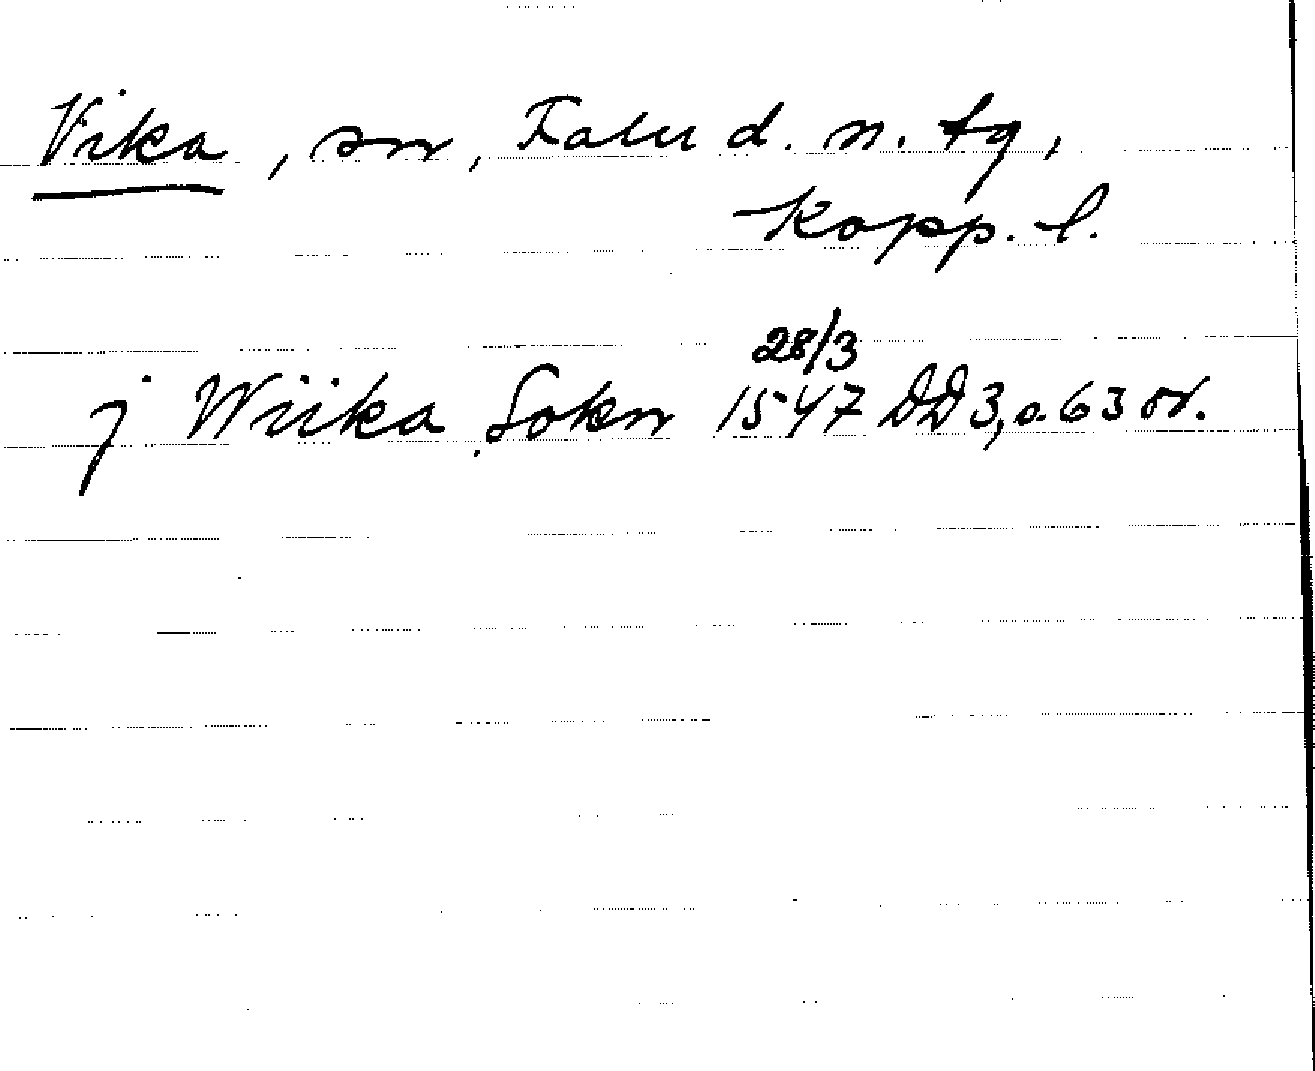 Vika, sn, Falu d. n. tg,
Kopp. l.
28/3
j Wiika Sokn 1547 DD 3, o. 63 or.